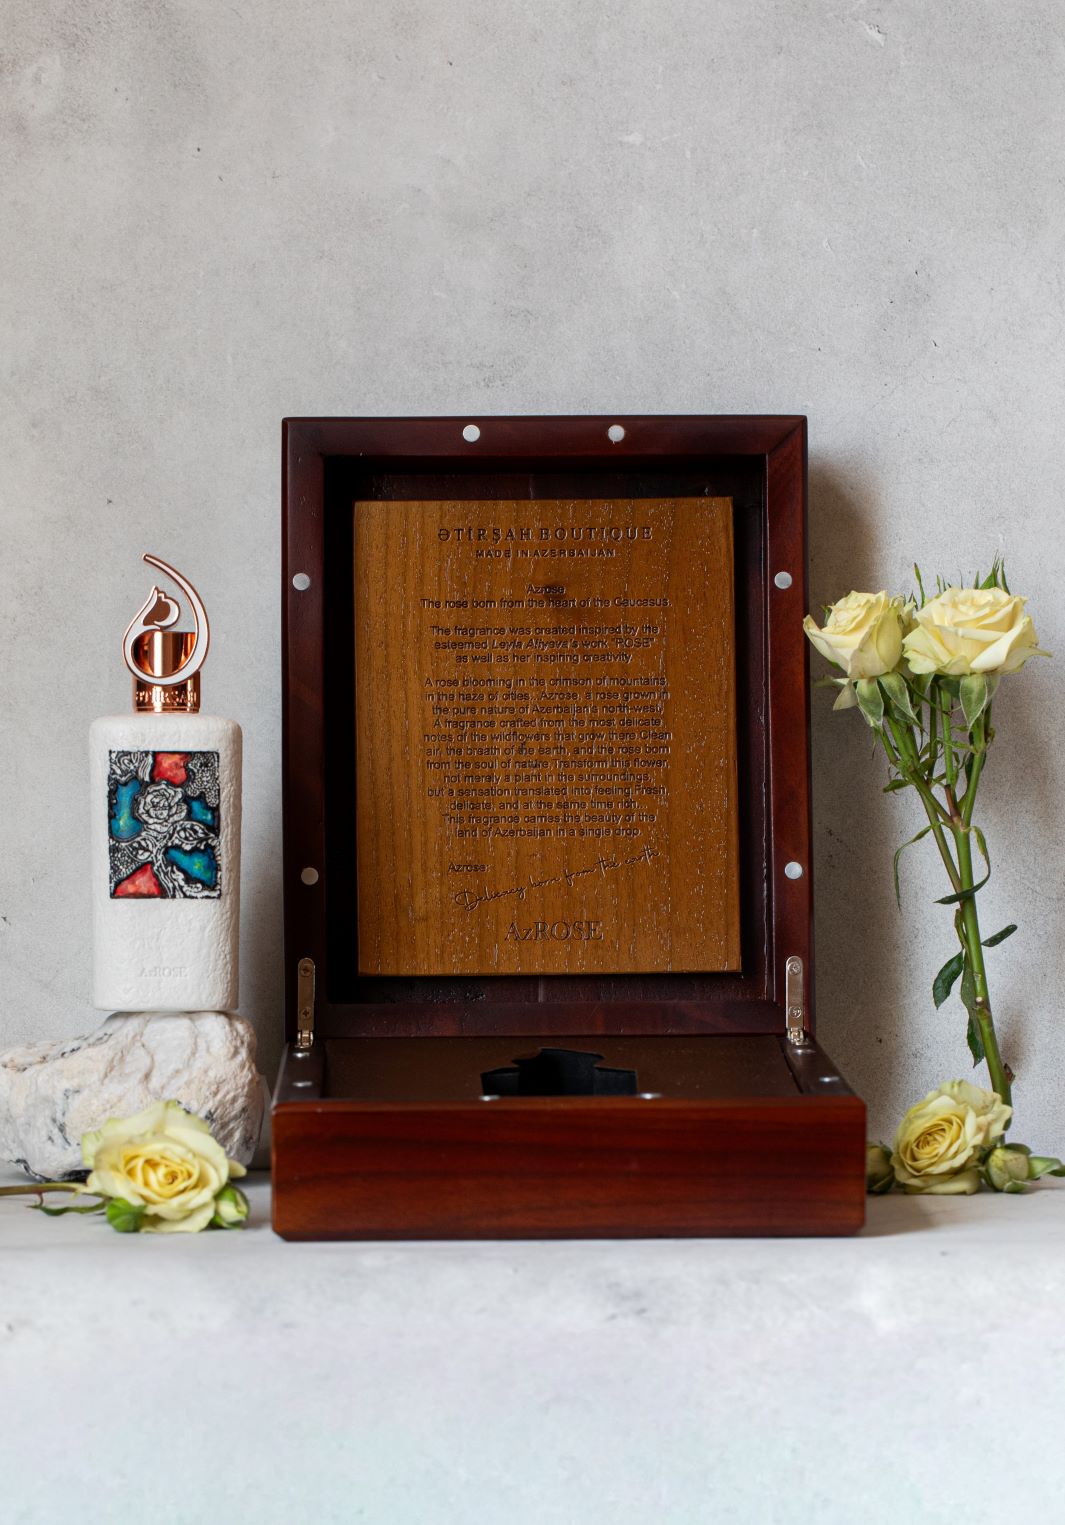 ƏTİRŞAH BOUTIQUE
MADE IN AZERBAIJAN
Azrose
The rose born from the heart of the Caucasus.
The fragrance was created inspired by the
esteemed Leyla Aliyeva's work "ROSE"
as well as her inspiring creativity.
A rose blooming in the crimson of mountains,
in the haze of cities... Azrose, a rose grown in
the pure nature of Azerbaijan's north-west.
A fragrance crafted from the most delicate
notes of the wildflowers that grow there. Clean
air, the breath of the earth, and the rose born
from the soul of nature. Transform this flower,
not merely a plant in the surroundings,
but a sensation translated into feeling. Fresh,
delicate, and at the same time rich...
This fragrance carries the beauty of the
land of Azerbaijan in a single drop.
Azrose:
Delicacy born from the earth
AzROSE
ƏTİRŞAH
AzROSE